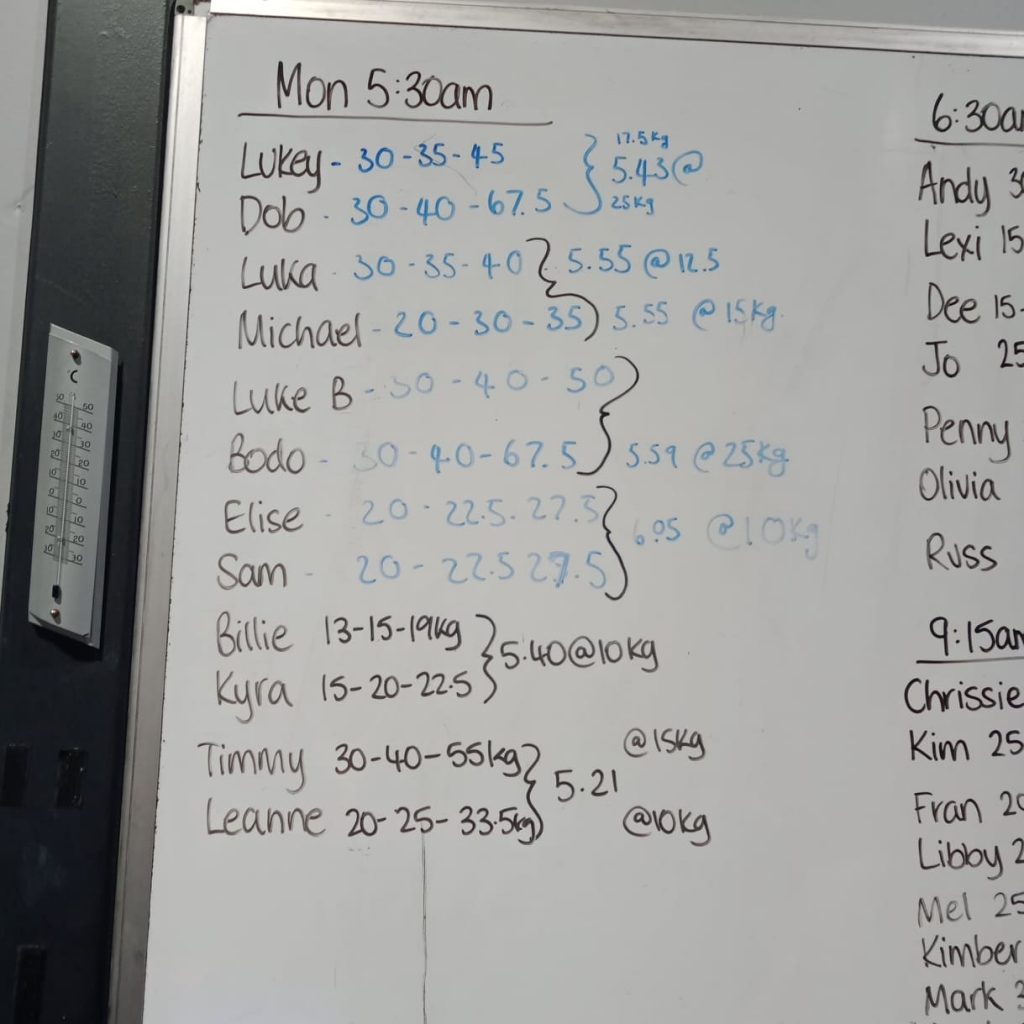 Mon 5:30am
Lukey - 30-35-45
17.5kg
5.43@
25kg
Dob - 30-40-67.5
Luka - 30-35-40 5.55 @ 12.5
Michael - 20-30-35 5.55 @ 15kg
Luke B - 30-40-50
Bodo - 30-40-67.5 5.59 @ 25kg
Elise 20-22.5.27.5
6.05 @ 10kg
Sam - 20-22.5 27.5
Billie 13-15-19kg
5.40@10kg
Kyra 15-20-22.5
@15kg
Timmy 30-40-55kg
5.21
Leanne 20-25-33.5kg
@10kg
6:30am
Andy 30
Lexi 15
Dee 15-
Jo 25
Penny
Olivia
Russ
9:15am
Chrissie
Kim 25
Fran 20
Libby 2
Mel 25
Kimber
Mark 3
C